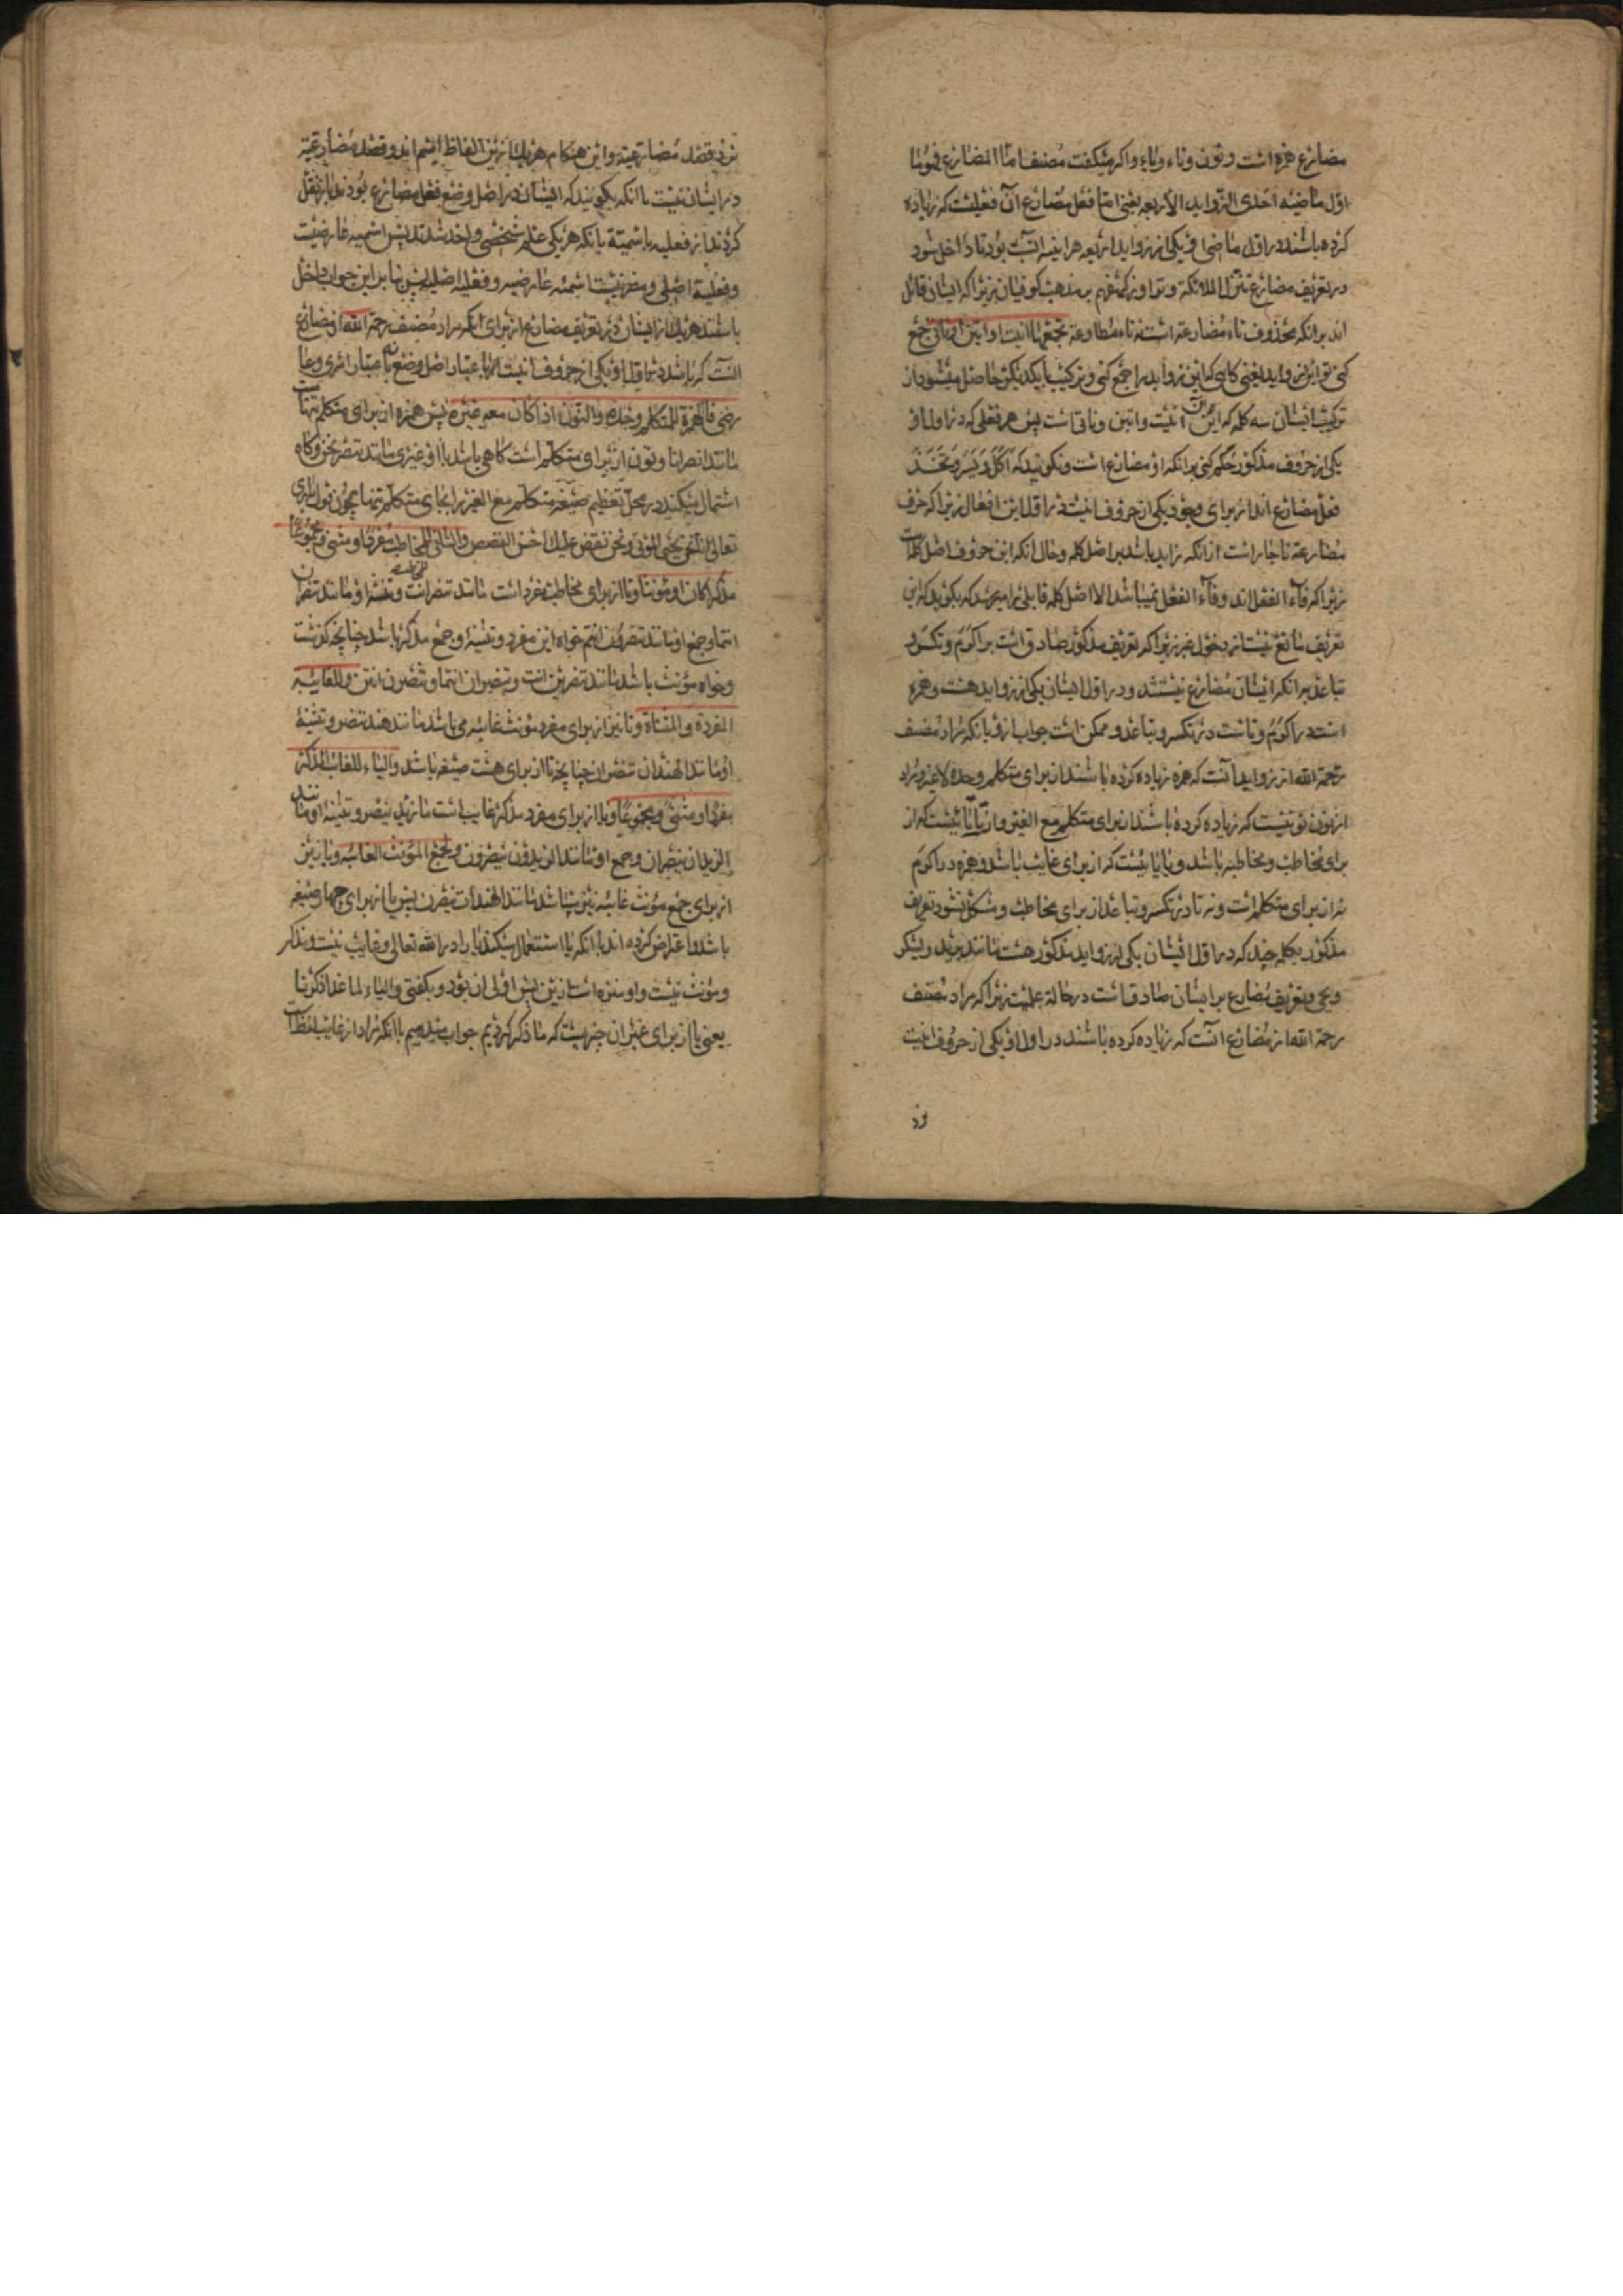 مضارع همزه است و نون و تاء و یاء و اگر میگفت مصنف اما المضارع فهو ما
اول ماضیه احدی الزواید الاربعه یعنی اما فعل مضارع آن فعلیست که زیاده
کرده باشند در اول ماضی او یکی از زواید اربعه هراینه انسب بود تا داخل شود
در تعریف مضارع تنزل الملائکة و تزاور کهفهم بر مذهب کوفیان زیرا که ایشان قائل
اند برانکه محذوف تاء مضارعة است نه تاء مطاوعة تجمعها انیت او اتین او ناتی جمع
کنی تو این زواید یعنی کاسی که این زواید را جمع کنی و ترکیب بایکدیگر حاصل میشود از
ترکیب ایشان سه کلمه که این انیت و اتین و ناتی است پس هر فعلی که در اول او
یکی از حروف مذکور حکم کنی برانکه او مضارع است و نگویند که اکل و یسر و تخذ
فعل مضارع اند از برای وجود یکی از حروف انیت در اول این افعال زیرا که حرف
مضارعة ناچار است از انکه زاید باشد بر اصل کلمه و حال انکه این حروف اصل کلمات
زیرا که فاء الفعل اند و فاء الفعل نمیباشد الا اصل کلمه قابلی را میرسد که بگوید که این
تعریف مانع نیست از دخول غیر زیرا که تعریف مذکور صادق است بر اکرم و تکسر و
تباعد برانکه ایشان مضارع نیستند و در اول ایشان یکی از زواید هست و همزه
است در اکرم و تاست در تکسر و تباعد و ممکن است جواب ازو بانکه مراد مصنف
رحمة الله از زواید آنست که همزه زیاده کرده باشند از برای متکلم وحده لاغیر و مراد
از نون نونیست که زیاده کرده باشند از برای متکلم مع الغیر و از تا تائیست که از
برای مخاطب و مخاطبه باشد و یا یائیست که از برای غایب باشد و همزه در اکرم
نه از برای متکلم است و نه تا در تکسر و تباعد از برای مخاطب و مشکل نشود تعریف
مذکور بکلمه چند که در اول ایشان یکی از زواید مذکور هست مانند یزید و یشکر
و یحیی و تعریف مضارع بر ایشان صادق است در حالة علمیت زیرا که مراد مصنف
رحمة الله از مضارع آنست که زیاده کرده باشند در اول او یکی از حروف انیت
نزد
نزد قصد مضارعیة و این هنگام هر یک از این الفاظ اسم اند و قصد مضارعیة
در ایشان نیست یا انکه بگویند که ایشان در اصل وضع فعل مضارع بودند باز نقل
کردند از فعلیه باسمیة بانکه هر یکی علم شخصی واحد شدند پس اسمیه عارضیست
و فعلیة اصلی و مضر نیست اسمیه عارضیه و فعلیه اصلیه پس بنا بر این جواب داخل
باشند هر یک از ایشان در تعریف مضارع از برای انکه مراد مصنف رحمة الله از مضارع
انست که باشد در اول او یکی از حروف انیت باعتبار اصل وضع نه باعتبار امری
رضی فالهمزة للمتکلم وحده والنون اذا کان معه غیره پس همزه از برای متکلم تنهاست
مانند انصر انا و نون از برای متکلم است کاهی باشد با او غیری مانند ننصر نحن و کاه
استعمال میکنند در محل تعظیم صیغه متکلم مع الغیر را بجای متکلم تنها همچون قول باری
تعالی نحن نقص علیک احسن القصص والتاء للمخاطب مفردا و مثنی و مجموعا
مذکرا کان او مؤنثا و تا از برای مخاطب مفرد است مانند تنصر انت و تثنیه او مانند تنصران
انتما و جمع او مانند تنصرون انتم خواه این مفرد و تثنیه و جمع مذکر باشد چنانچه گذشت
و خواه مؤنث باشد مانند تنصرین انت و تنصران انتما و تنصرن انتن وللغایبة
المفردة والمثناة و تا نیز از برای مفرد مؤنث غایبه می باشد مانند هند تنصر و تثنیه
او مانند الهندان تنصران چنانچه تا از برای هشت صیغه باشد والیاء للغائب المذکر
مفردا و مثنی و مجموعا و یا از برای مفرد مذکر غایب است مانند زید ینصر و تثنیه او مانند
الزیدان ینصران و جمع او مانند الزیدون ینصرون ولجمع المؤنث الغائبة و یا نیز
از برای جمع مؤنث غائبه نیز میباشد مانند الهندات ینصرن پس یا از برای چهار صیغه
باشد و اعتراض کرده اند با انکه یا استعمال میکنند یا را در الله تعالی و غایب نیست و مذکر
و مؤنث نیست و او منزه است ازین پس اولی ان بود و بگفتی والیاء لما عدا ذکرنا
یعنی یا از برای غیر ان چیزیست که ما ذکر کردیم جواب میدهیم با انکه مراد از غایب لفظ است